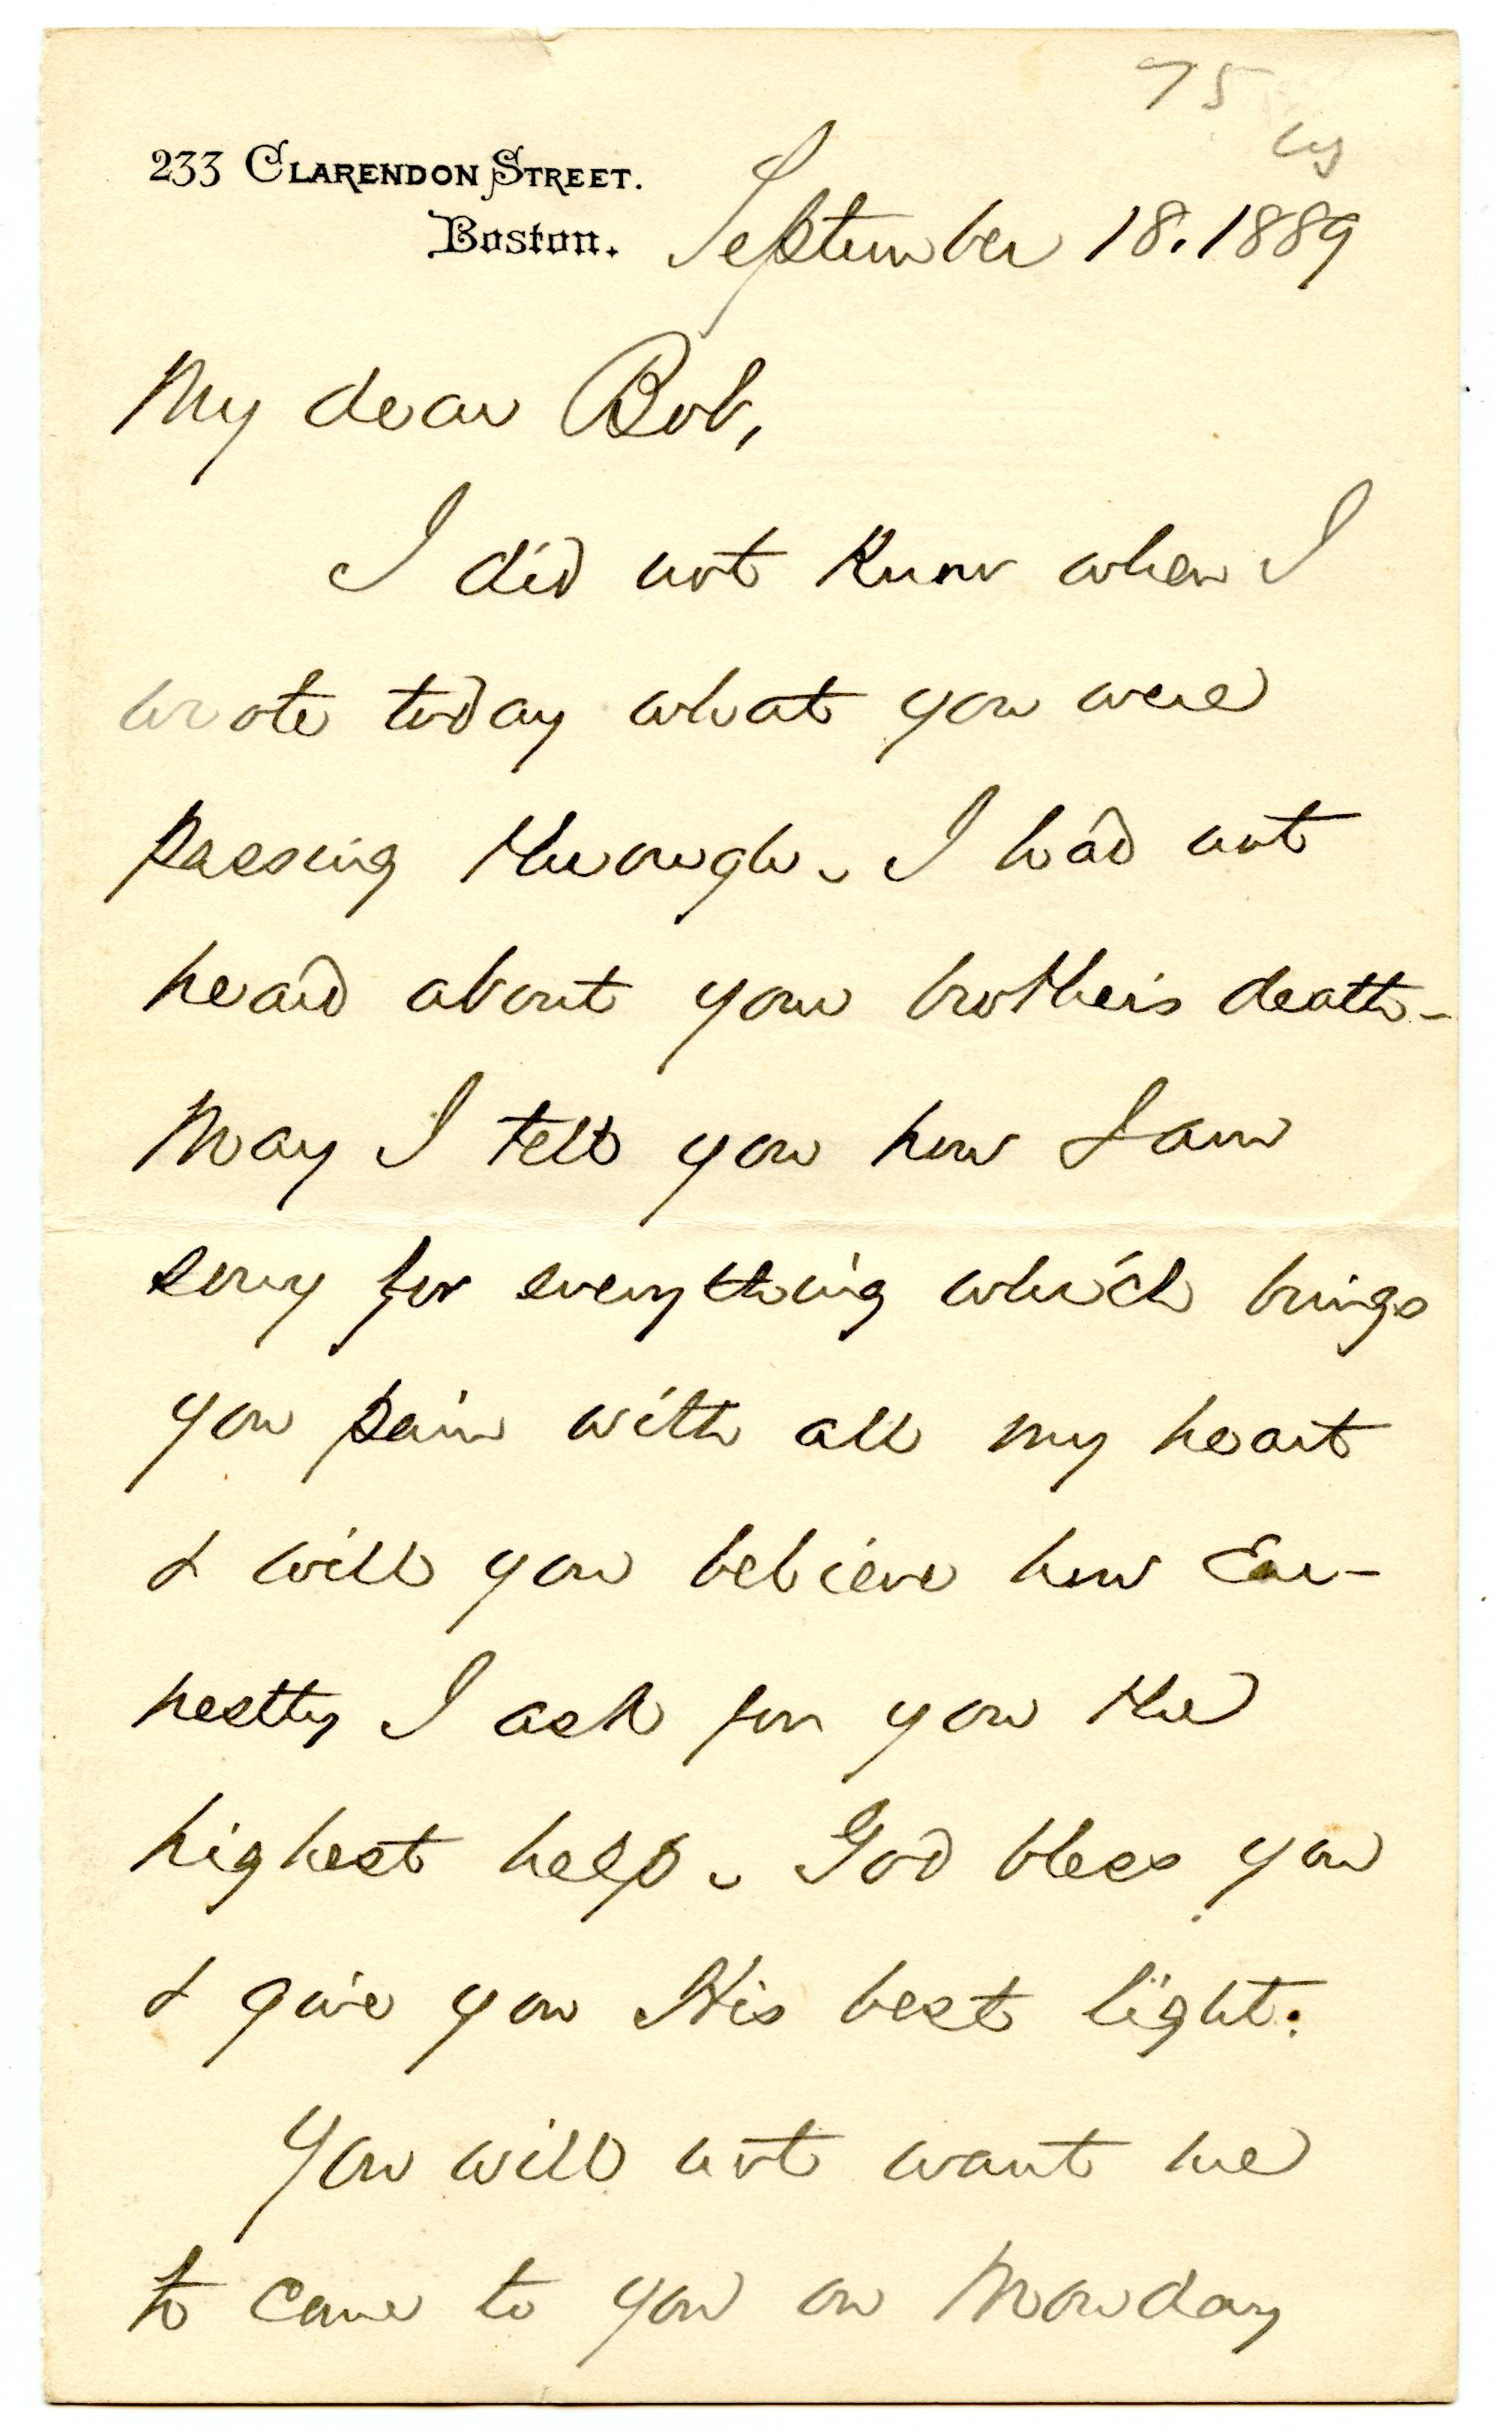 75
233 Clarendon Street.
Boston. September 18. 1889
My dear Bob,
I did not know when I
wrote today what you were
passing through. I had not
heard about your brother's death -
May I tell you how I am
sorry for everything which brings
you pain with all my heart
& will you believe how ear-
nestly I ask for you the
highest help. God bless you
& give you His best light.
You will not want me
to come to you on Monday